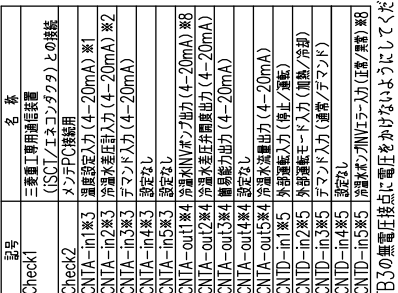 記号 名 称
Check1 三菱重工専用通信装置
(iSCT/エネコンダクタ) との接続
Check2 メンテPC接続用
CNTA-in1※3 温度設定入力 (4-20mA) ※1
CNTA-in2※3 冷温水差圧計入力 (4-20mA) ※2
CNTA-in3※3 デマンド入力 (4-20mA)
CNTA-in4※3 設定なし
CNTA-in5※3 設定なし
CNTA-out1※4 冷温水INVポンプ出力 (4-20mA) ※8
CNTA-out2※4 冷温水差圧弁開度出力 (4-20mA)
CNTA-out3※4 簡易能力出力 (4-20mA)
CNTA-out4※4 設定なし
CNTA-out5※4 冷温水流量出力 (4-20mA)
CNTD-in1※5 外部運転入力 (停止/運転)
CNTD-in2※5 外部運転モード入力 (加熱/冷却)
CNTD-in3※5 デマンド入力 (通常/デマンド)
CNTD-in4※5 設定なし
CNTD-in5※5 冷温水ポンプINVエラー入力 (正常/異常) ※8
B3の無電圧接点に電圧をかけないようにしてくだ